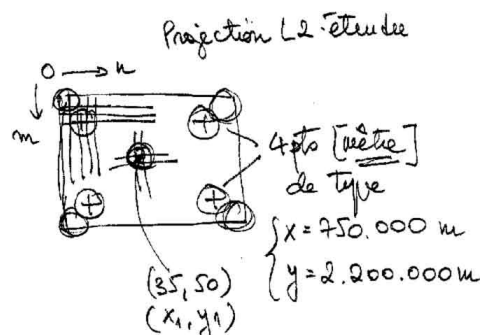 Projection L2 étendue
O → n
↓
m
+ + + +
4 pts [mètre]
de type
{ x = 750.000 m
y = 2.200.000 m
(35, 50)
(x₁, y₁)